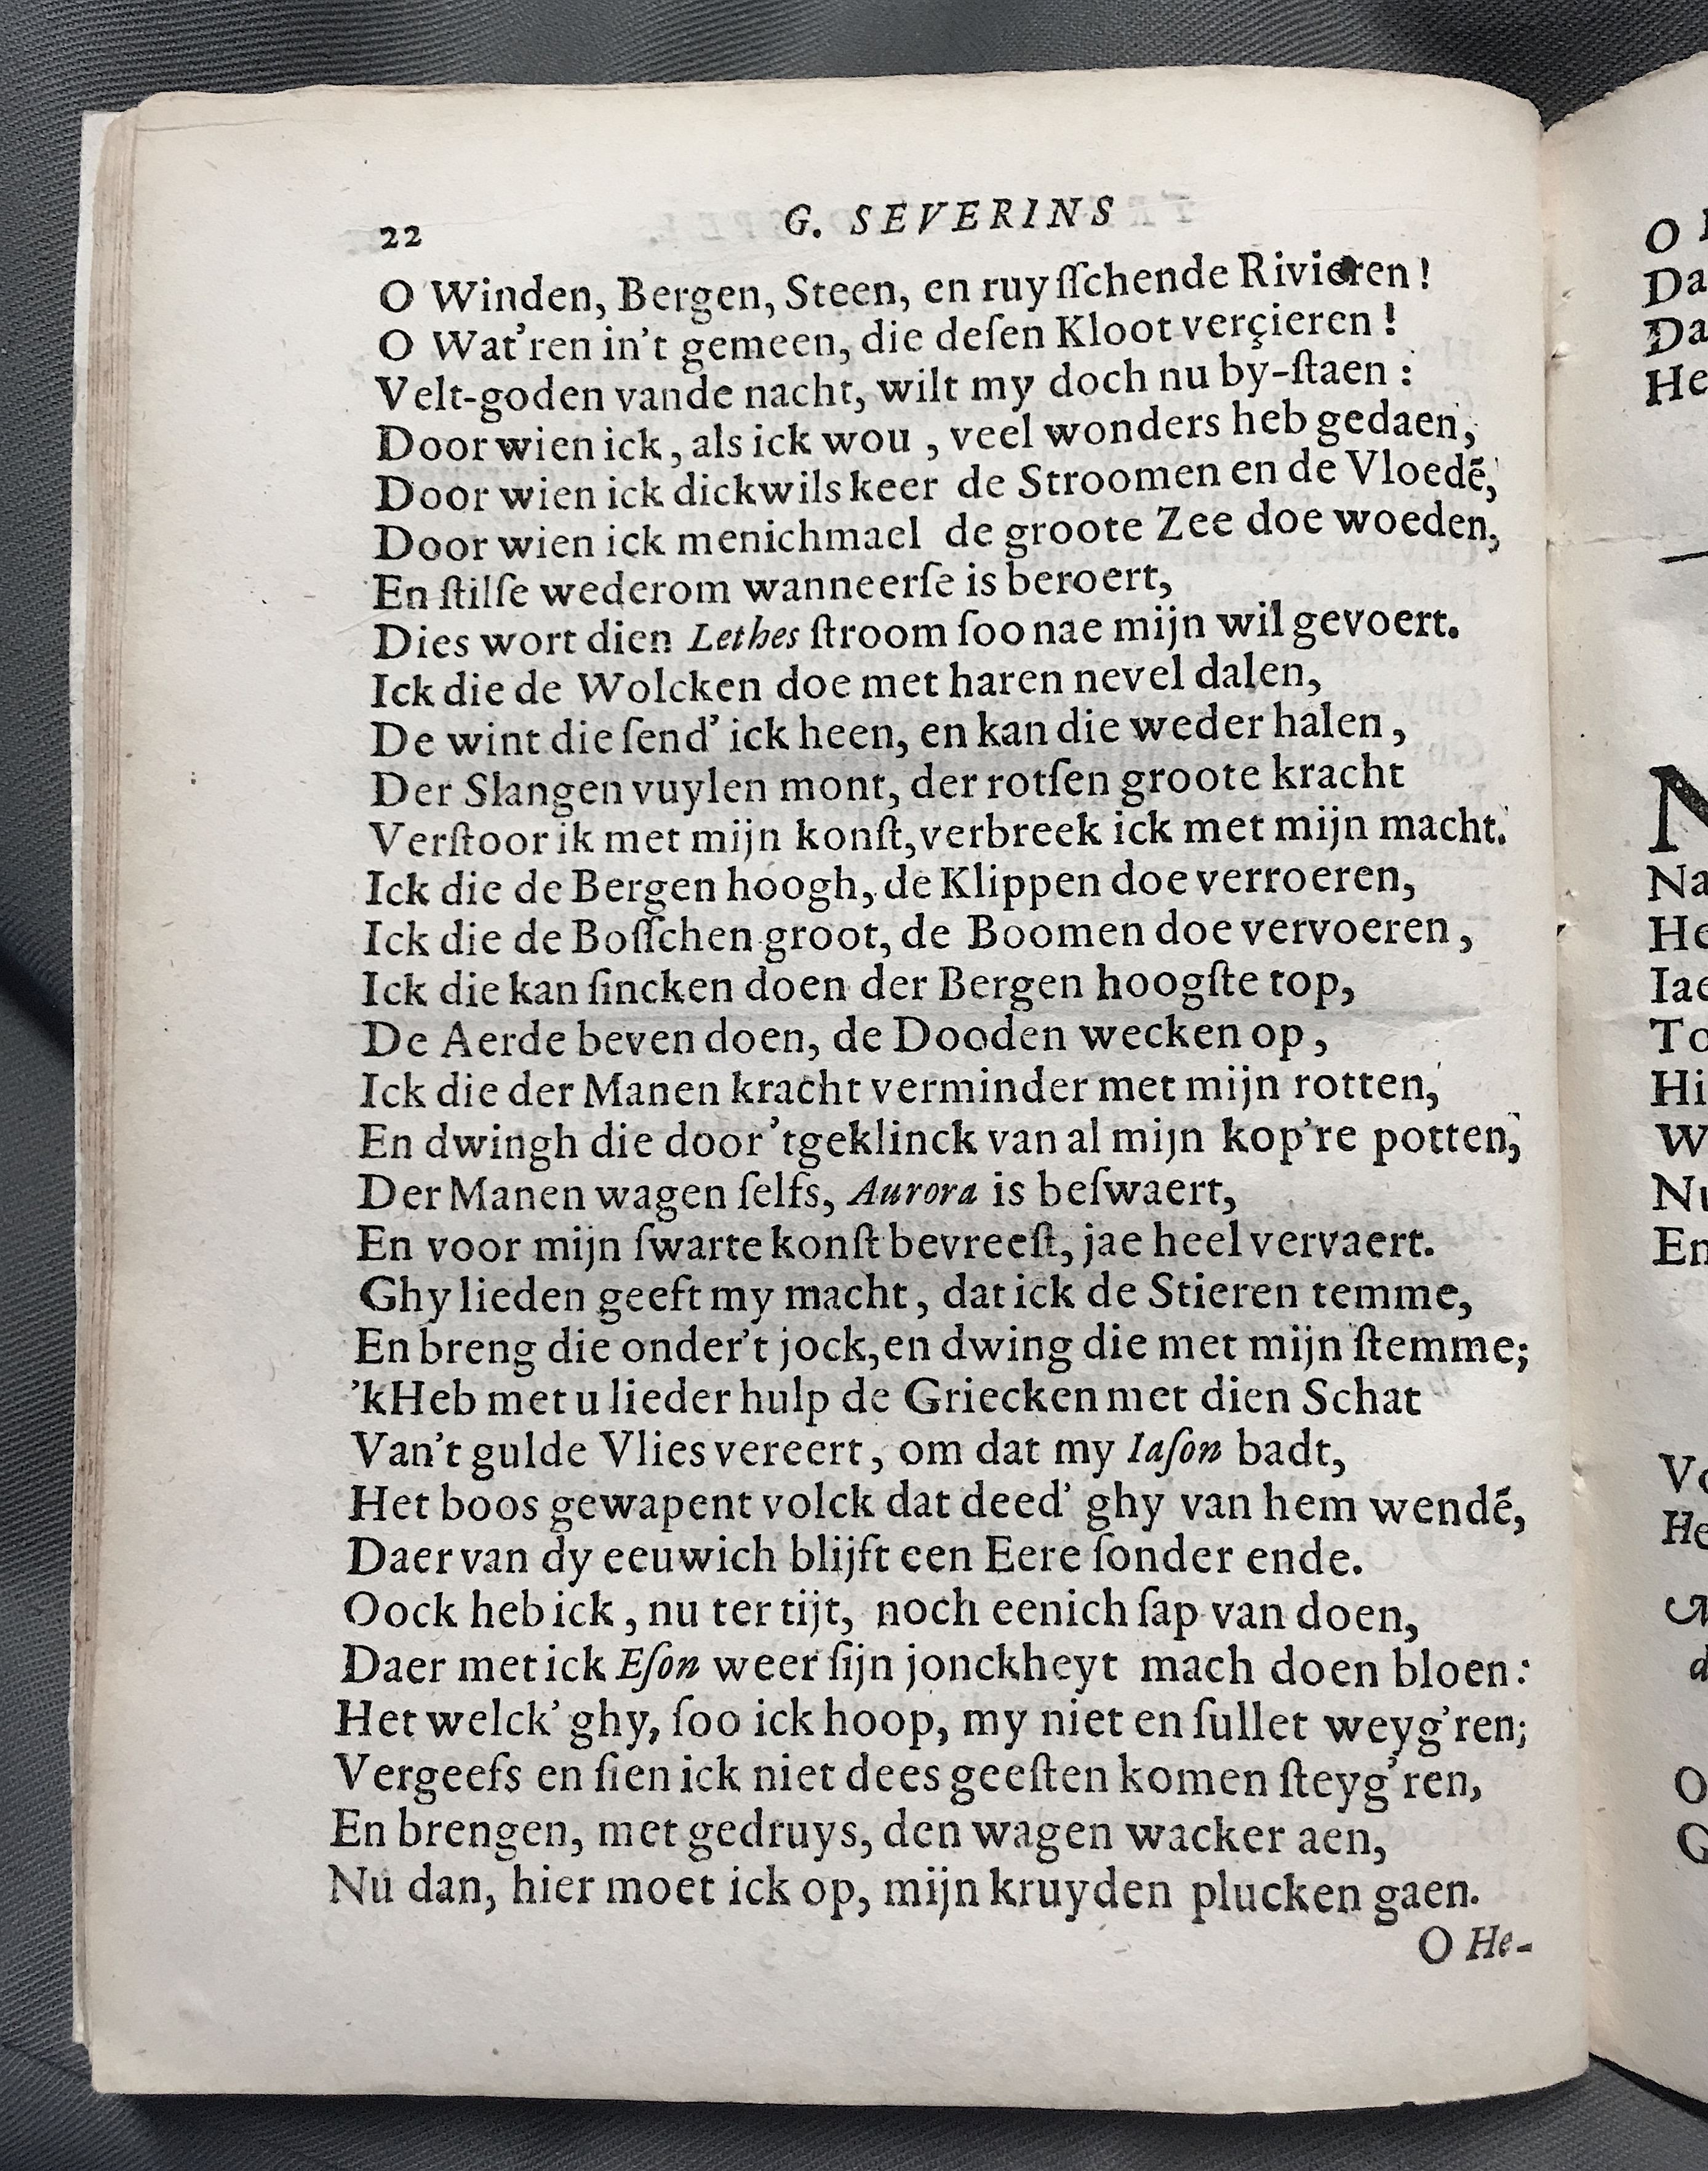 22 G. SEVERINS
O Winden, Bergen, Steen, en ruyſſchende Rivieren!
O Wat'ren in't gemeen, die deſen Kloot verçieren!
Velt-goden vande nacht, wilt my doch nu by-ſtaen:
Door wien ick, als ick wou, veel wonders heb gedaen,
Door wien ick dickwils keer de Stroomen en de Vloedē,
Door wien ick menichmael de groote Zee doe woeden,
En ſtilſe wederom wanneerſe is beroert,
Dies wort dien Lethes ſtroom ſoo nae mijn wil gevoert.
Ick die de Wolcken doe met haren nevel dalen,
De wint die ſend' ick heen, en kan die weder halen,
Der Slangen vuylen mont, der rotſen groote kracht
Verſtoor ik met mijn konſt, verbreek ick met mijn macht.
Ick die de Bergen hoogh, de Klippen doe verroeren,
Ick die de Boſſchen groot, de Boomen doe vervoeren,
Ick die kan ſincken doen der Bergen hoogſte top,
De Aerde beven doen, de Dooden wecken op,
Ick die der Manen kracht verminder met mijn rotten,
En dwingh die door'tgeklinck van al mijn kop're potten,
Der Manen wagen ſelfs, Aurora is beſwaert,
En voor mijn ſwarte konſt bevreeſt, jae heel vervaert.
Ghy lieden geeft my macht, dat ick de Stieren temme,
En breng die onder't jock, en dwing die met mijn ſtemme;
'kHeb met u lieder hulp de Griecken met dien Schat
Van't gulde Vlies vereert, om dat my Iaſon badt,
Het boos gewapent volck dat deed' ghy van hem wendē,
Daer van dy eeuwich blijft een Eere ſonder ende.
Oock heb ick, nu ter tijt, noch eenich ſap van doen,
Daer met ick Eſon weer ſijn jonckheyt mach doen bloen:
Het welck' ghy, ſoo ick hoop, my niet en ſullet weyg'ren;
Vergeefs en ſien ick niet dees geeſten komen ſteyg'ren,
En brengen, met gedruys, den wagen wacker aen,
Nu dan, hier moet ick op, mijn kruyden plucken gaen.
O He-